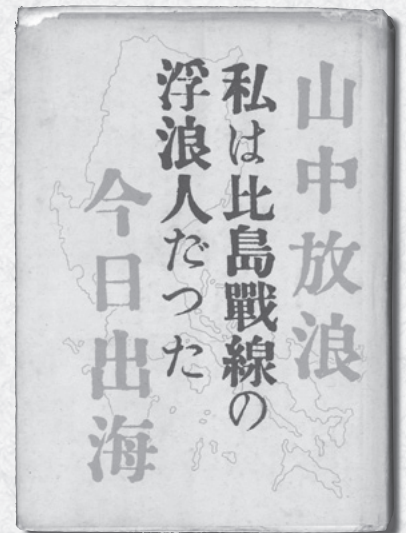 山中放浪
私は比島戰線の
浮浪人だつた
今日出海